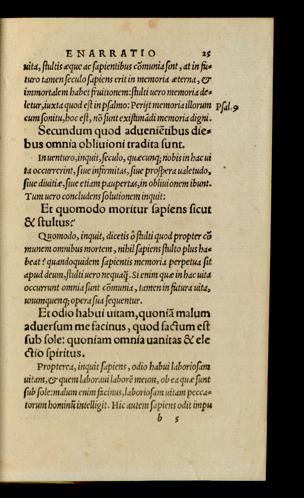 ENARRATIO 25
uita, stultis æque ac sapientibus cõmunia sunt, at in fu-
turo tamen seculo sapiens erit in memoria æterna, &
immortalem habet fruitionem: stulti uero memoria de-
letur, iuxta quod est in psalmo: Perijt memoria illorum Psal. 9
cum sonitu, hoc est, nõ sunt existimãdi memoria digni.
Secundum quod adueniẽtibus die
bus omnia obliuioni tradita sunt.
In uenturo, inquit, seculo, quæcunq; nobis in hac ui
ta occurrerint, siue infirmitas, siue prospera ualetudo,
siue diuitiæ, siue etiam paupertas, in obliuionem ibunt.
Tum uero concludens solutionem inquit:
Et quomodo moritur sapiens sicut
& stultus?
Quomodo, inquit, dicetis ô stulti quod propter cõ
munem omnibus mortem, nihil sapiens stulto plus ha-
beat? quandoquidem sapientis memoria perpetua sit
apud deum, stulti uero nequaq̃. Si enim quæ in hac uita
occurrunt omnia sunt cõmunia, tamen in futura uita,
unumquenq; opera sua sequentur.
Et odio habui uitam, quoniã malum
aduersum me facinus, quod factum est
sub sole: quoniam omnia uanitas & ele
ctio spiritus.
Propterea, inquit sapiens, odio habui laboriosam
uitam, & quem laboraui laborẽ meum, ob ea quæ sunt
sub sole: malum enim facinus, laboriosam uitam pecca-
torum hominũ intelligit. Hic autem sapiens odit impu
b 5